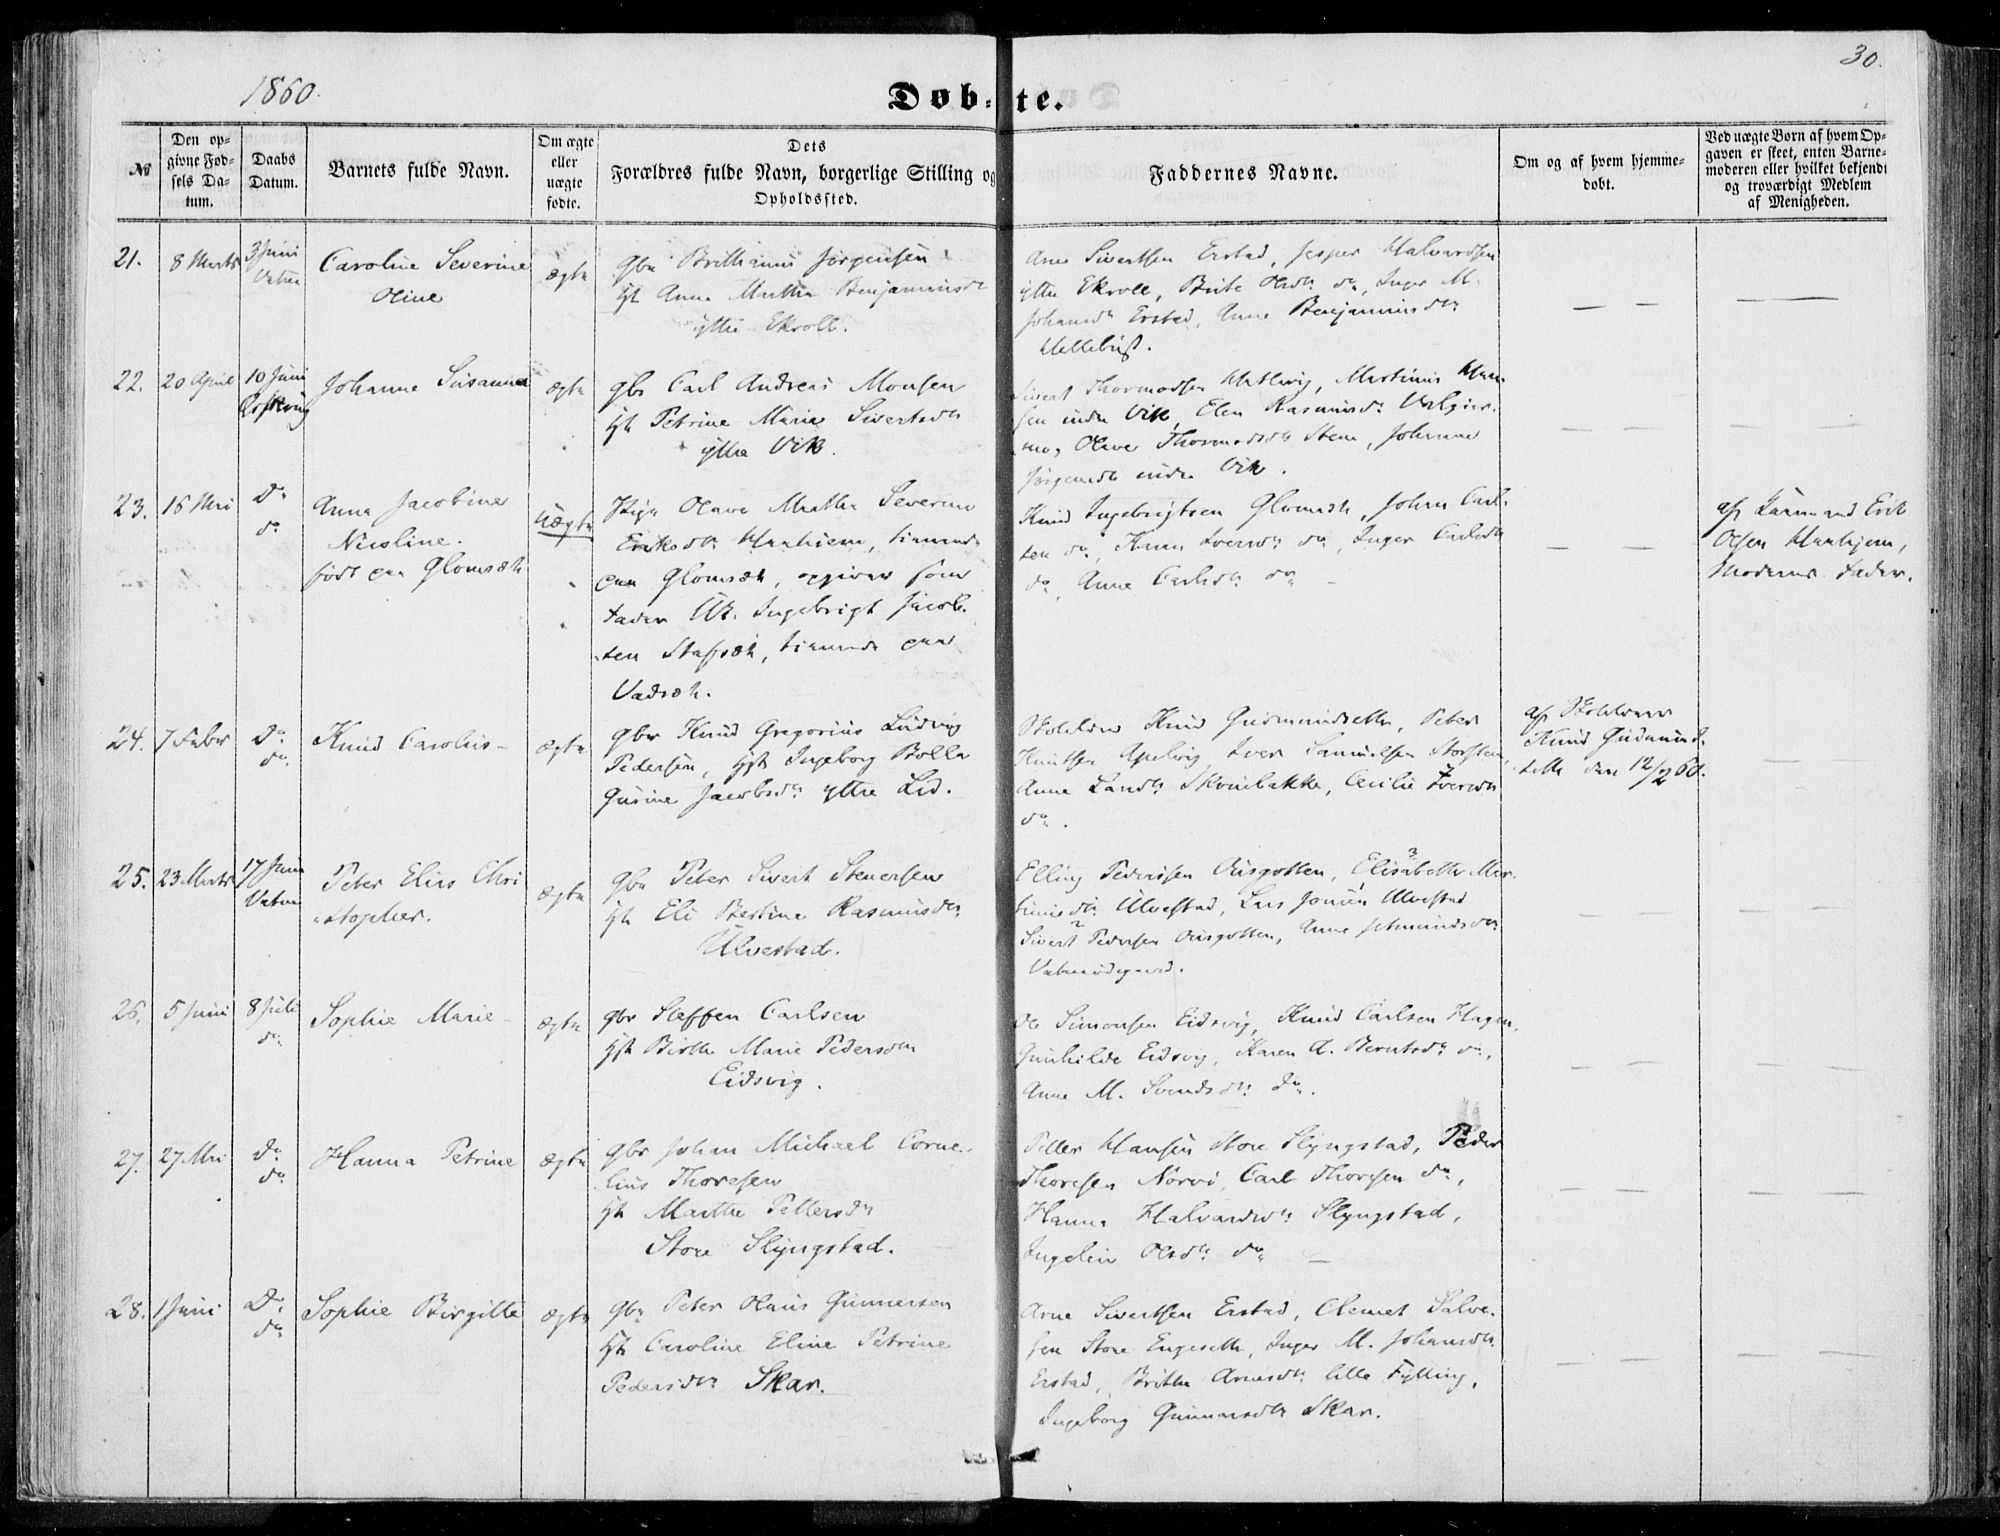 30.
1860.
Døb-te.
№
Den opgivne Fødsels Datum.
Daabs Datum.
Barnets fulde Navn.
Om ægte eller uægte fødte.
Dets Forældres fulde Navn, borgerlige Stilling og Opholdssted.
Faddernes Navne.
Om og af hvem hjemmedøbt.
Ved uægte Børn af hvem Opgaven er skeet, enten Barnemoderen eller hvilket bekjendt og troværdigt Medlem af Menigheden.
21. 8 Marts 3 Juni Vatne
Caroline Severine
Oline
ægte
Gbr Brithanus Jørgensen
Hst Anna Martha Benjaminsdr
yttre Ekroll.
Arne Sivertsen Erstad, Jesper Halvardsen
yttre Ekroll, Brite Olsdr do, Inger M.
Johansdr Erstad, Anne Benjaminsdr
Hellebust.
22. 20 April 10 Juni Ørskoug
Johanne Susanna
ægte
gbr Carl Andreas Monsen
Hst Petrine Marie Sivertsdr
yttre Vik.
Sivert Thormodsen
Martinus
sen indre Vik, Elen Rasmusdr
Olave Thormodsdr Stene, Johanne
Jørgensdr indre Vik.
23. 16 Mai Do do
Anna Jacobine
Nicoline.
født paa Glomsæt
Uægte
Pige Olave Martha Severine
Eriksdr tienende
paa Glomsæt, opgiver som
Fader Uk. Ingebrigt Jacob-
sen Stafsæt, tienende paa
Vadsæt.
Knud Ingebrigtsen Glomsæt, Johan Carl-
sen do, Iversdr do, Inger Carlsdr
do, Anne Carlsdr do
af Erik
Olsen
Moderens Fader.
24. 7 Febr Do do
Knud Carolus
ægte
Gbr Knud Gregorius Ludvig
Pedersen, Hst Ingeborg
Gurine Jacobsdr yttre Lid.
Skoleholder Knud Gudmundsætter, Peter
Knutsen Apelvig, Iver Samuelsen
Anne Larsdr Skoubakke, Cecilie Iversdr
do.
af Skoleholder
Knud Gudmund-
den 12/2 60.
25. 23 Marts 17 Juni Vatne
Peter Elias Chri
stopher.
ægte
Gbr Peter Sivert Stenersen
Hst Eli Bertine Rasmusdr
Ulvestad.
Elling Pedersen Ousgotten, Elisabeth Mar-
tinusdr Ulvestad, Lars Ulvestad
Sivert Pedersen Ousgotten, Anne
26. 5 Juni 8 Juli do
Sophie Marie
ægte
gbr Steffen Carlsen
Hst Birthe Marie Pedersdr
Eidsvig.
Ole Simonsen Eidsvig, Knud Carlsen Hagen,
Gunhilde Eidsvig, Karen A. Berntsdr do,
Anne M. Svendsdr do.
27. 27 Mai Do do
Hanna Petrine
ægte
Gbr Johan Michael Corne-
lius Thoresen
Hst Marthe Pettersdr
Store Slyngstad.
Petter Hansen Store Slyngstad, Peder
Thoresen Carl Thoresen do,
Hanna Halvardsdr Slyngstad,
Olsdr do
28. 1 Juni Do do
Sophie Birgitte
ægte
Gbr Peter Olaus Gunnersen
Hst Caroline Eline Petrine
Pedersdr Skar.
Arne Sivertsen Erstad, Clemet Salve-
sen Store Engesett, Inger M. Johansdr
Erstad, Brithe Arnesdr lille Fylling,
Ingeborg Gunnersdr Skar.